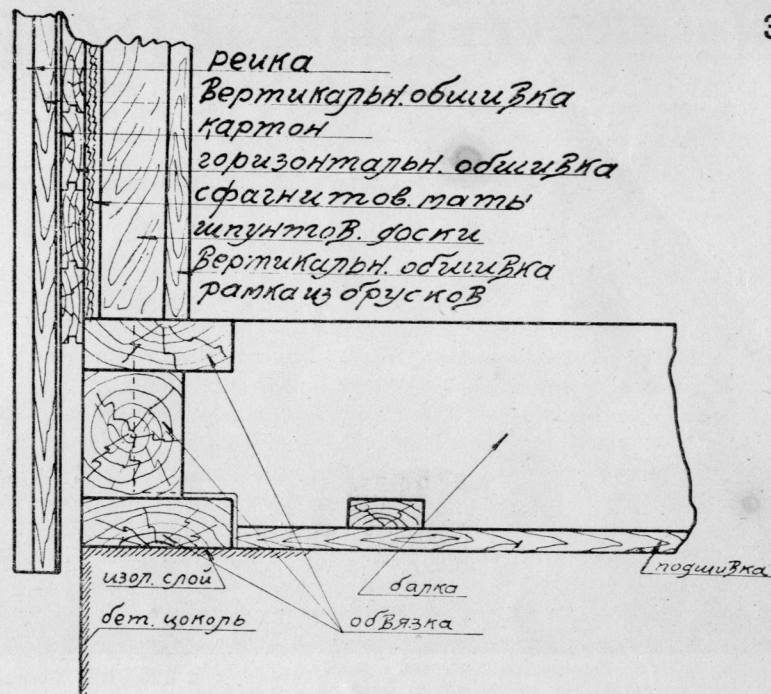 З
рейка
Вертикальн. обшивка
картон
горизонтальн. обшивка
сфагнитов. маты
шпунтов. доски
Вертикальн. обшивка
рамка из брусков
изол. слой
балка
подшивка
бет. цоколь
обвязка